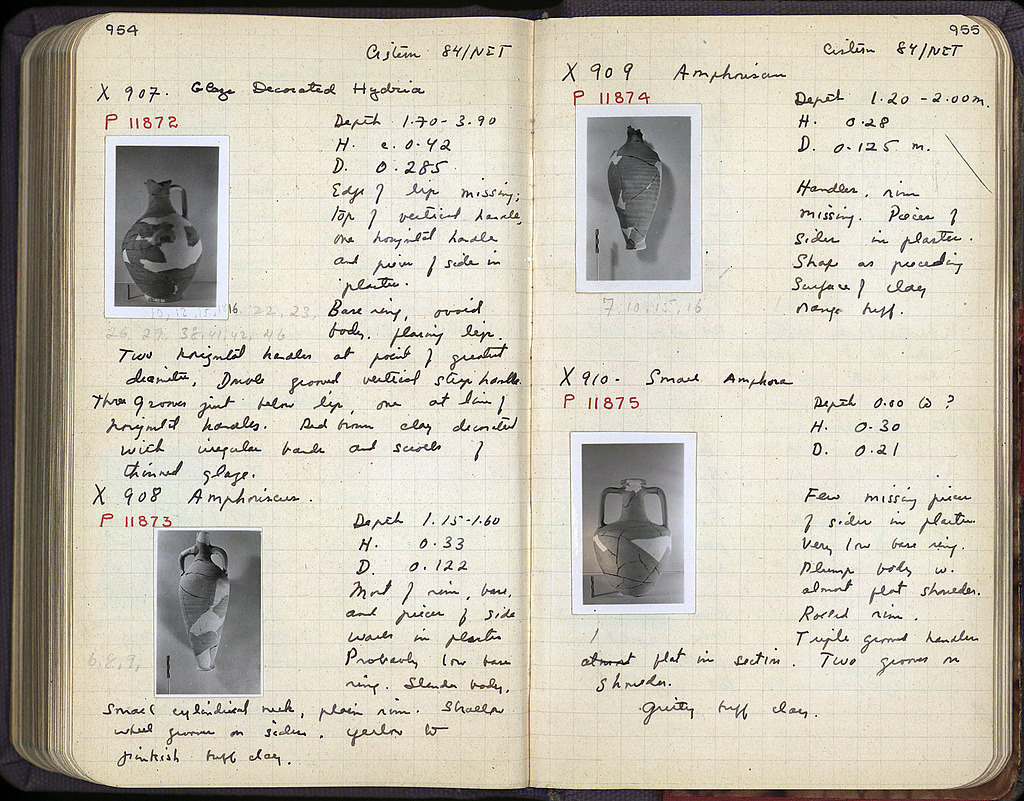 954
Cistern 84/NET
X 907. Glaze Decorated Hydria
P 11872
Depth 1.70-3.90
H. c. 0.42
D. 0.285
Edge of lip missing;
top of vertical handle,
one horizontal handle
and pieces of side in
plaster.
Base ring, ovoid
body. flaring lip.
16. 22, 23,
26 29, 38, 41, 42, 46
Two horizontal handles at point of greatest
diameter. Double grooved vertical strap handle.
Three grooves just below lip, one at line of
horizontal handles. Red brown clay decorated
with irregular bands and scrolls of
thinned glaze.
X 908 Amphoriscus.
P 11873
Depth 1.15-1.60
H. 0.33
D. 0.122
Most of rim, base,
and pieces of side
walls in plaster
Probably low base
ring. Slender body.
6, 8, 9,
Small cylindrical neck, plain rim. Shallow
wheel grooves on sides. yellow to
pinkish buff clay.
955
Cistern 84/NET
X 909 Amphoriscus
P 11874
Depth 1.20-2.00m.
H. 0.28
D. 0.125 m.
Handles, rim
missing. Pieces of
sides in plaster.
Shape as preceding
Surface of clay
orange buff.
7, 10, 15, 16
X 910- Small Amphora
P 11875
Depth 0.00 ?
H. 0.30
D. 0.21
Few missing pieces
of sides in plaster.
Very low base ring.
Plump body w.
almost flat shoulder.
Rolled rim.
Triple grooved handles
almost flat in section. Two grooves on
shoulder.
Gritty buff clay.